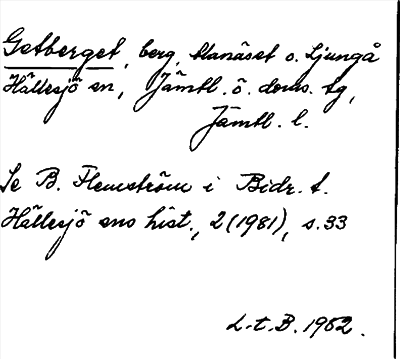 Getberget, berg, Manäset o. Ljungå
Hällesjö sn, Jämtl. ö. doms. tg,
Jämtl. l.
Se B. Flemström i Bidr. t.
Hällesjö sns hist., 2 (1981), s. 33
L.t.B. 1982.